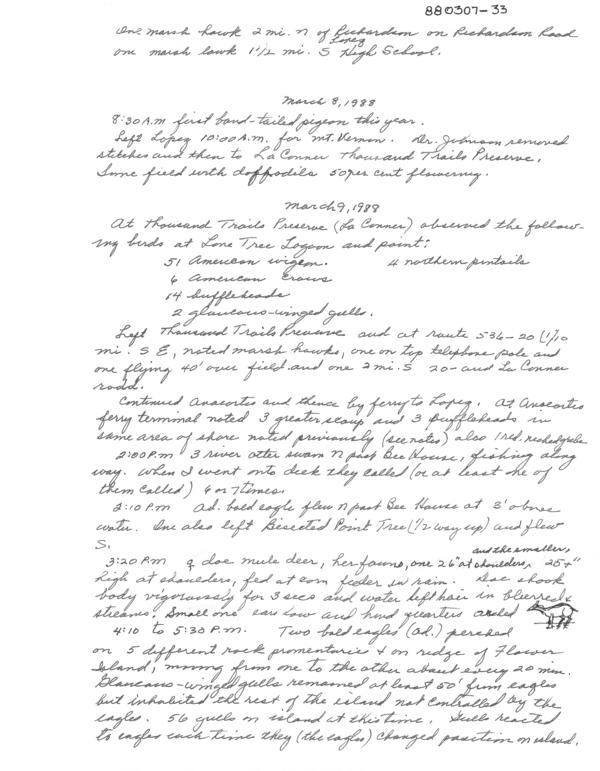 880307-33
One marsh hawk 2 mi. N of Richardson on Richardson Road
Lopez
one marsh hawk 1 1/2 mi. S High School.
March 8, 1988
8:30 A.M first band-tailed pigeon this year.
Left Lopez 10:00 A.M. for Mt. Vernon. Dr. Johnson removed
stitches and then to LaConner Thousand Trails Preserve.
Some field with daffodils 50 per cent flowering.
March 9, 1988
At Thousand Trails Preserve (La Conner) observed the follow-
ing birds at Lone Tree Lagoon and point:
51 American wigeon. 4 northern pintails
6 American Crows
14 buffleheads
2 glaucous-winged gulls.
Left Thousand Trails Preserve and at route 536-20 (1/10
mi. S E, noted marsh hawks, one on top telephone pole and
one flying 40' over field and one 2 mi. S 20- and La Conner
road.
Continued Anacortes and thence by ferry to Lopez. At Anacortes
ferry terminal noted 3 greater scaup and 3 Buffleheads in
same area of shore noted previously (see notes) also 1 red-necked grebe
2:00 P.m 3 river otter swam N past Bee House, fishing along
way. When I went onto deck they called (or at least one of
them called) 6 or 7 times.
2:10 P.m Ad. bald eagle flew N past Bee House at 3' above
water. One also left Bisected Point Tree (1/2 way up) and flew
S.
and the smaller,
3:20 P.m doe mule deer, her fawns, one 26" at shoulders, 25+"
high at shoulders, fed at corn feeder in rain. Doe shook
body vigorously for 3 secs and water left hair in blurred
streams. Small one ears low and hind quarters
4:10 to 5:30 P.M. Two bald eagles (ad.) perched
on 5 different rock promentories + on ridge of Flower
Island, moving from one to the other about every 20 min.
Glaucous-winged gulls remained at least 50' from eagles
but inhabited the rest of the island not controlled by the
eagles. 56 gulls on island at this time. Gulls reacted
to eagles each time they (the eagles) changed position on island.